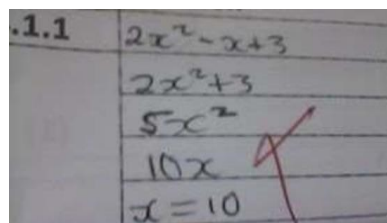 .1.1
2x² - x + 3
2x² + 3
5x²
10x
x = 10